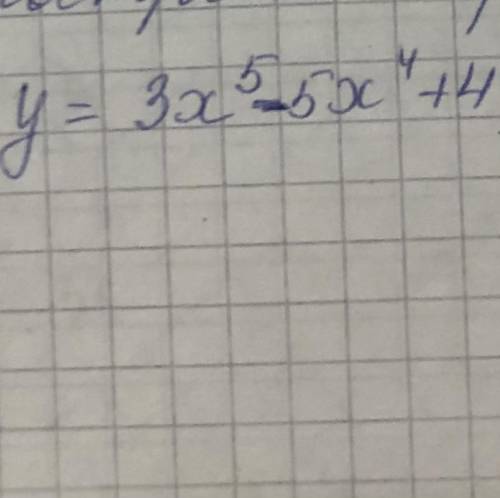 y = 3x⁵-5x⁴+4